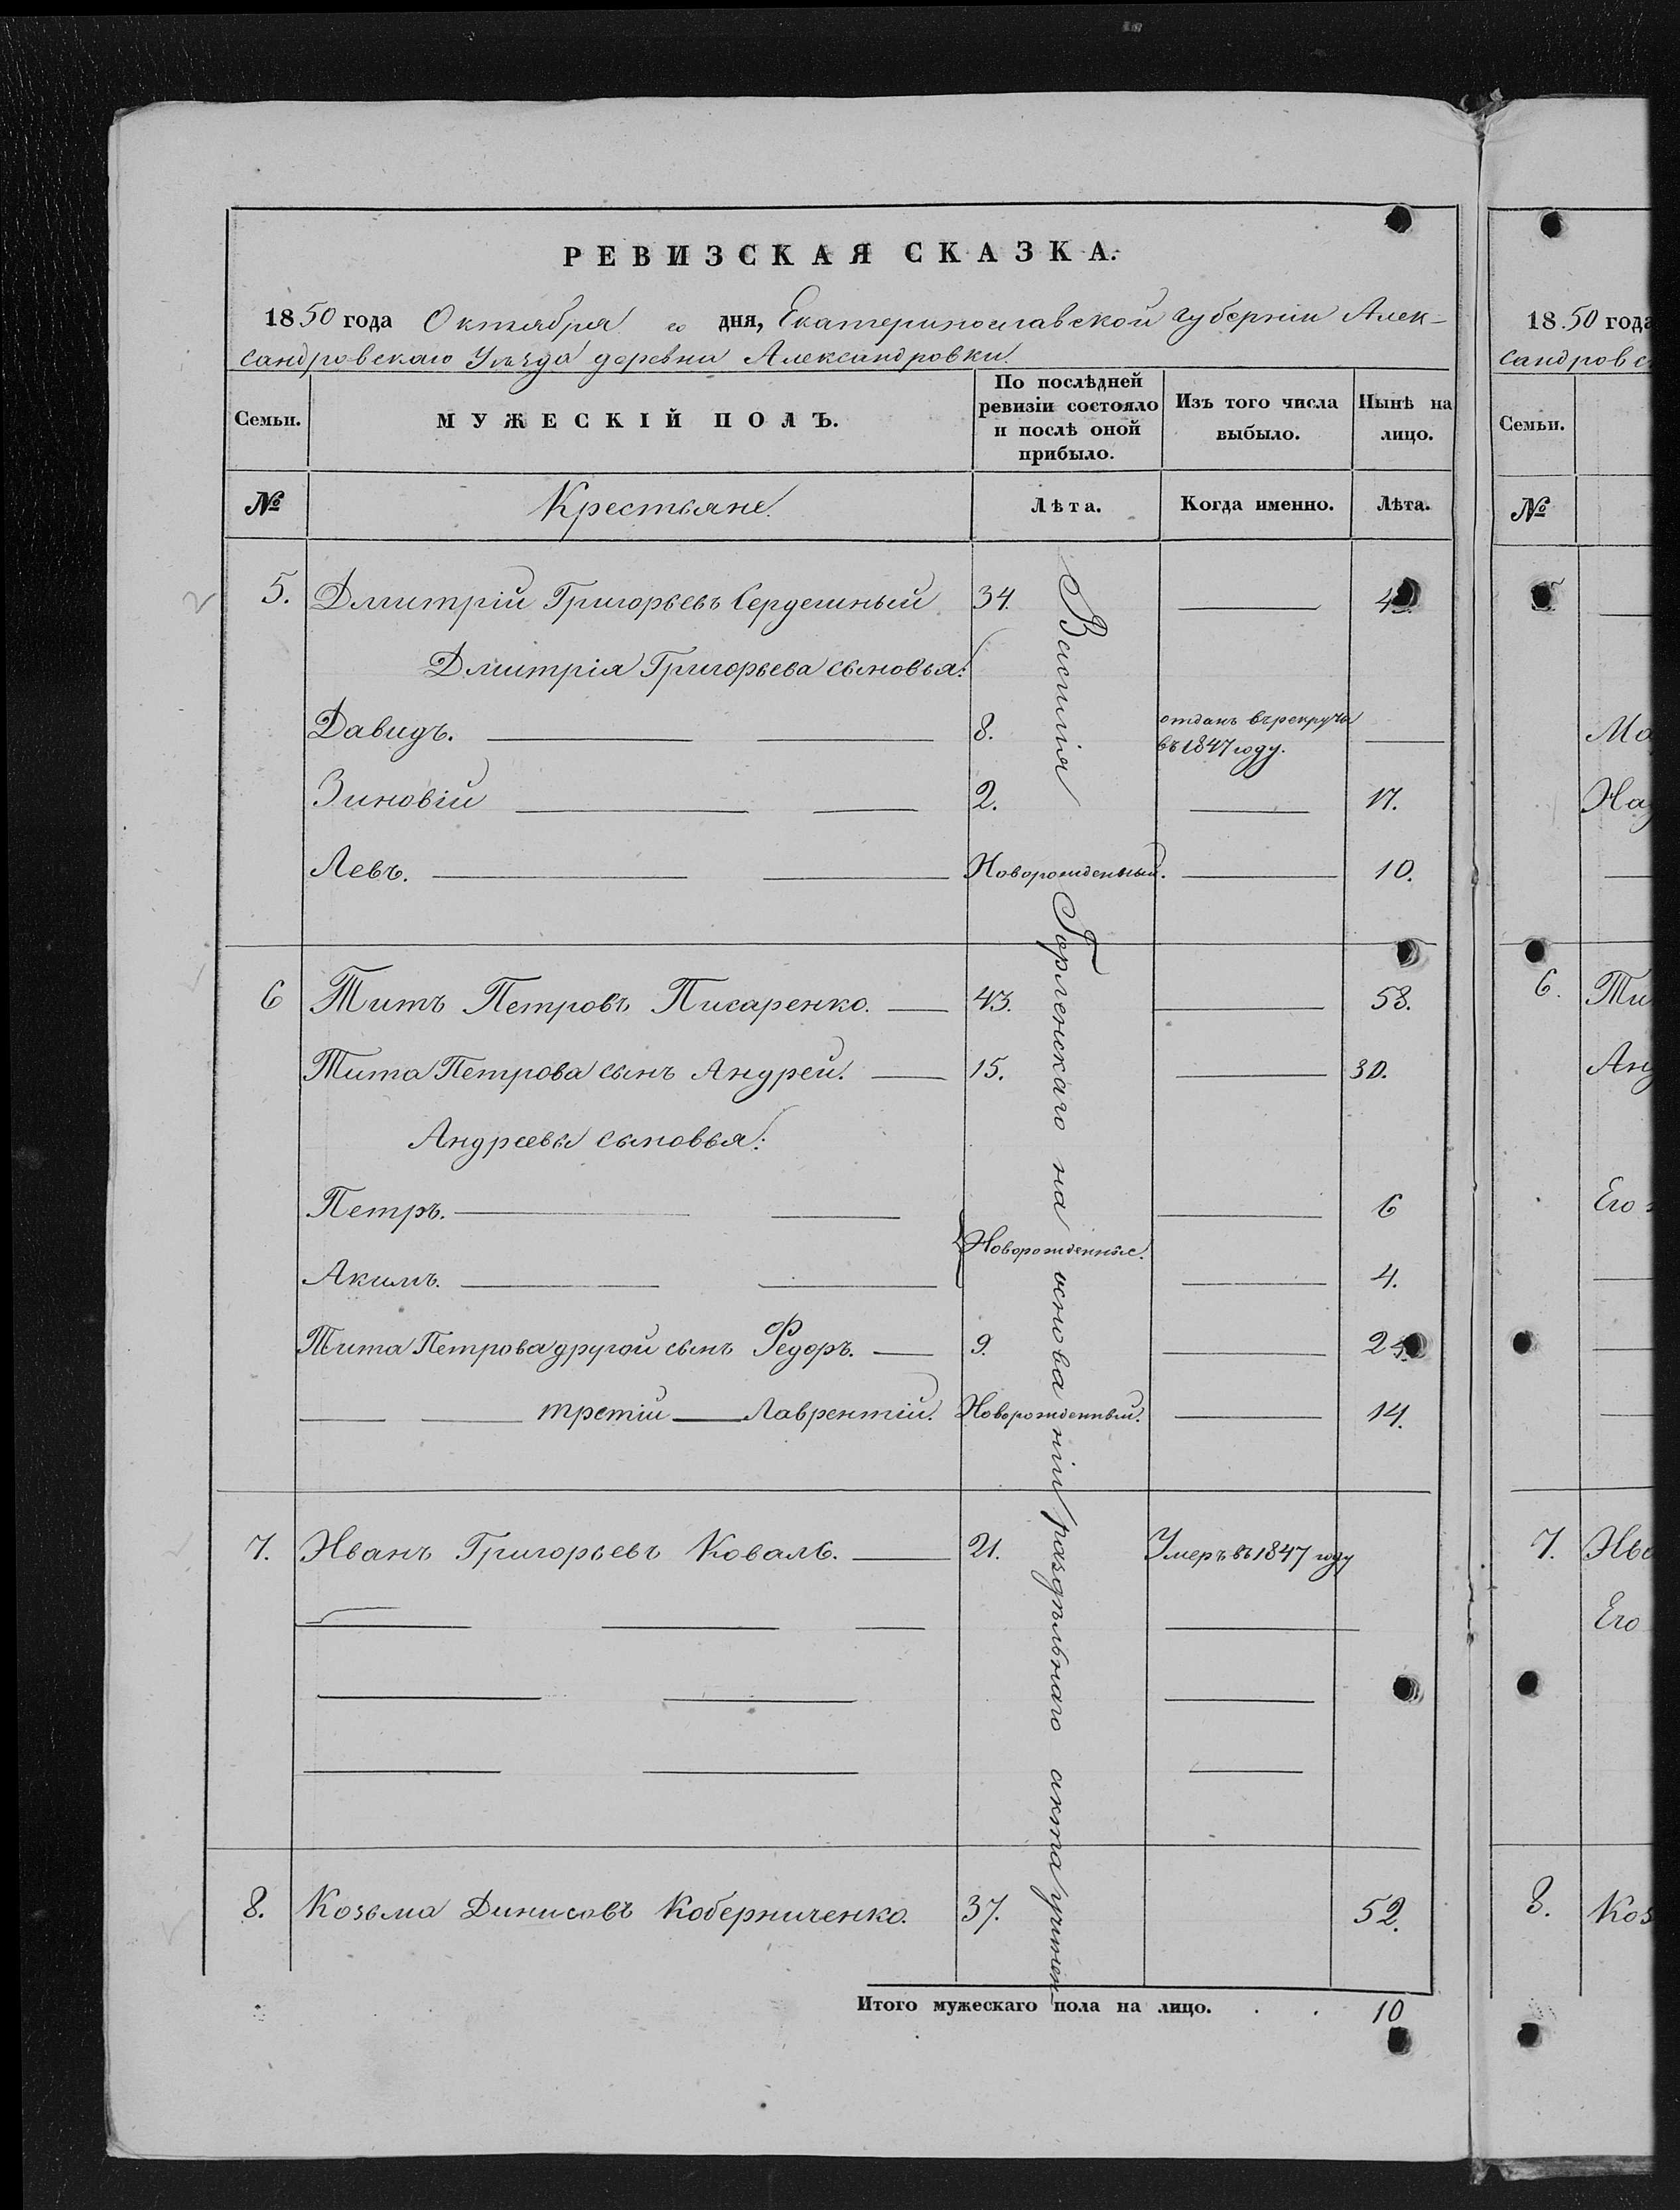 РЕВИЗСКАЯ СКАЗКА.
1850 года Октября дня, Екатеринославской Губерніи Алек-
сандровскаго Уѣзда деревни Александровки.
Семьи. МУЖЕСКІЙ ПОЛЪ. По послѣдней ревизіи состояло и послѣ оной прибыло. Изъ того числа выбыло. Нынѣ на лицо.
№ Крестьяне. Лѣта. Когда именно. Лѣта.
5. Дмитрій Григорьевъ Сердешный 34.
Дмитрія Григорьева сыновья:
Давидъ. 8. отданъ въ рекруты въ 1847 году.
Зиновій 2. 17.
Левъ. Новорожденный. 10.
6 Титъ Петровъ Писаренко. 43. 58.
Тита Петрова сынъ Андрей. 15. 30.
Андреевы сыновья:
Петръ. 6
Новорожденные.
Акимъ. 4.
Тита Петрова другой сынъ Федоръ. 9. 24.
третій Лаврентій. Новорожденный. 14.
7. Иванъ Григорьевъ Коваль. 21. Умеръ въ 1847 году
8. Козьма Динисовъ Коберниченко. 37. 52.
Василія Горленскаго на основаніи раздѣльнаго акта
Итого мужескаго пола на лицо. . . 10
1850 года
сандровс
Семьи.
№
Ма
6. Ти
Анд
Его
7. Ива
Его
8. Коз